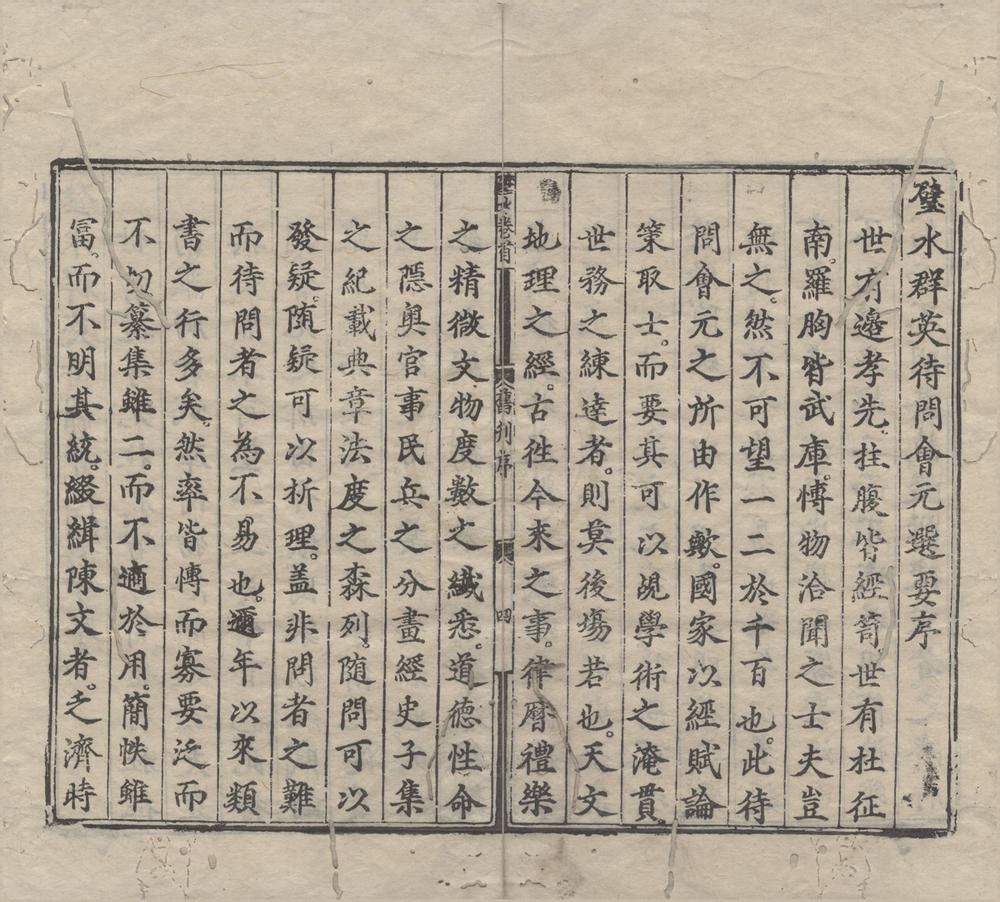 璧水群英待問會元選要序
世有邊孝先拄腹皆經笥世有杜征
南羅胸皆武庫愽物洽聞之士夫豈
無之然不可望一二於千百也此待
問會元之所由作歟國家以經賦論
策取士而要其可以覘學術之淹貫
世務之練達者則莫後塲若也天文
地理之經古徃今來之事律曆禮樂
璧水卷首 舊刊序 四
之精微文物度數之纖悉道德性命
之隱奥官事民兵之分畫經史子集
之紀載典章法度之森列随問可以
發疑随疑可以析理盖非問者之難
而待問者之為不易也邇年以來類
書之行多矣然率皆愽而寡要泛而
不切纂集雖二而不適於用簡帙雖
冨而不明其統綴緝陳文者乏濟時